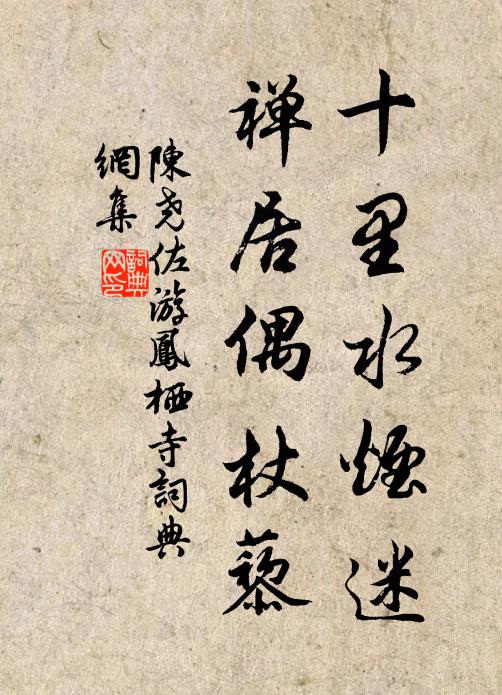 十里水煙迷
禅居偶杖藜
陳尧佐游鳳栖寺詞典
網集
詞典网印